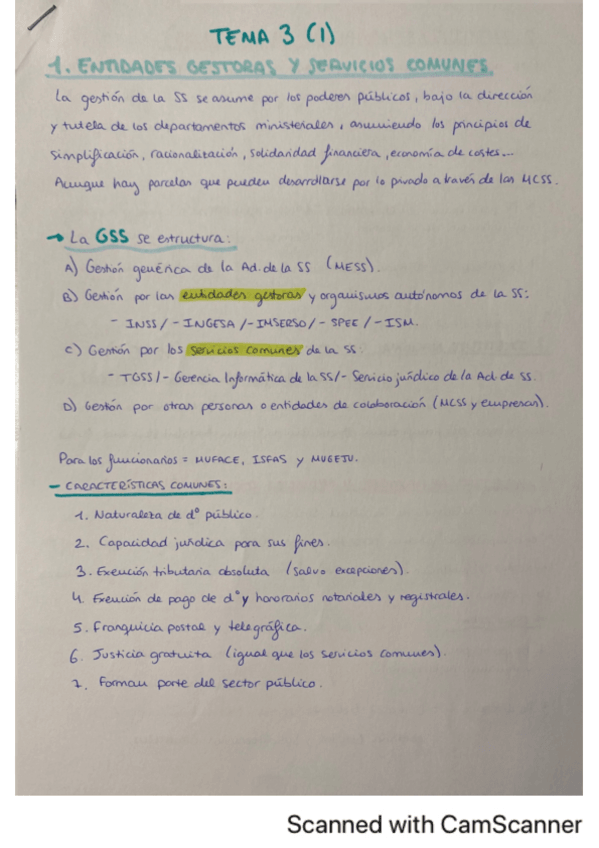 TEMA 3 (1)
1. ENTIDADES GESTORAS Y SERVICIOS COMUNES.
La gestión de la SS se asume por los poderes públicos, bajo la dirección
y tutela de los departamentos ministeriales, asumiendo los principios de
simplificación, racionalización, solidaridad financiera, economía de costes...
Aunque hay parcelas que pueden desarrollarse por lo privado a través de las MCSS.
→ La GSS se estructura:
A) Gestión genérica de la Ad. de la SS (MESS).
B) Gestión por las entidades gestoras y organismos autónomos de la SS:
- INSS / - INGESA / - IMSERSO / - SPEE / - ISM.
C) Gestión por los servicios comunes de la SS:
- TGSS / - Gerencia Informática de la SS / - Servicio jurídico de la Ad. de SS.
D) Gestión por otras personas o entidades de colaboración (MCSS y empresas).
Para los funcionarios = MUFACE, ISFAS y MUGEJU.
- CARACTERÍSTICAS COMUNES:
1. Naturaleza de dº público.
2. Capacidad jurídica para sus fines.
3. Exención tributaria absoluta (salvo excepciones).
4. Exención de pago de dº y honorarios notariales y registrales.
5. Franquicia postal y telegráfica.
6. Justicia gratuita (igual que los servicios comunes).
7. Forman parte del sector público.
Scanned with CamScanner